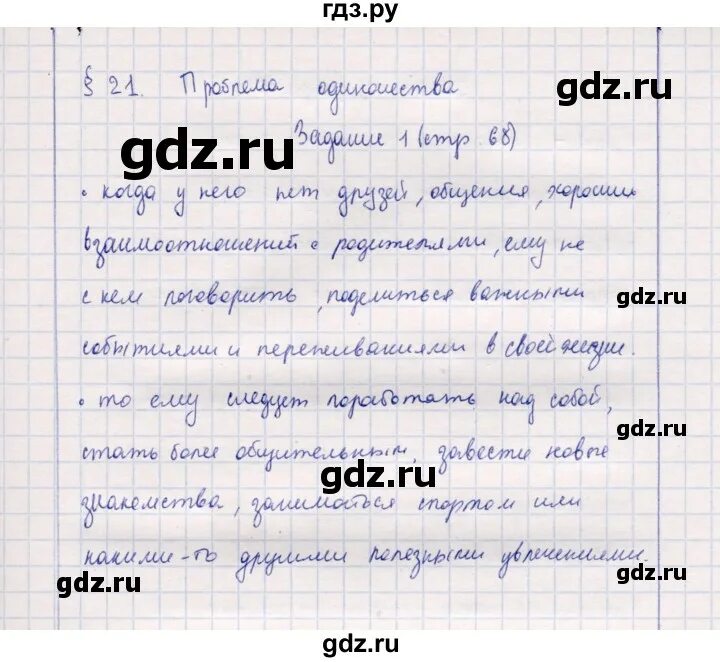 гдз.ру
§ 21. Проблема одиночества
gdz.ru
Задание 1 (стр. 68)
gdz.ru
• когда у него нет друзей, общения, хороших
взаимоотношений с родителями, ему не
с кем поговорить, поделиться важными
gdz.ru
событиями и переживаниями в своей жизни.
• то ему следует поработать над собой,
gdz.ru
стать более общительным, завести новые
gdz.ru
знакомства, заниматься спортом или
какими-то другими полезными увлечениями.
gdz.ru
gdz.ru
gdz.ru